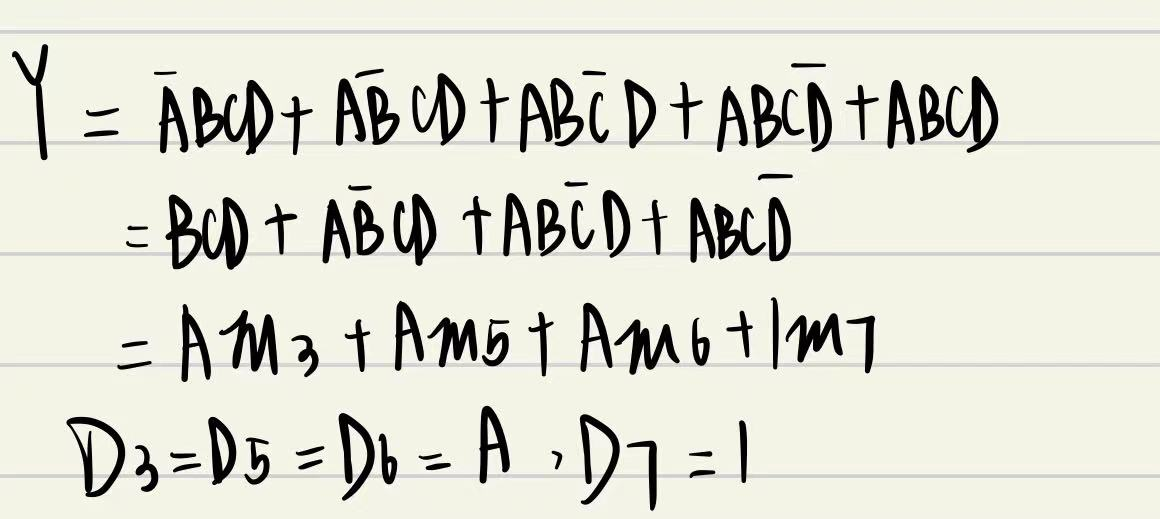 Y = A̅BCD + AB̅CD + ABC̅D + ABCD̅ + ABCD
= BCD + AB̅CD + ABC̅D + ABCD̅
= Am3 + Am5 + Am6 + 1m7
D3 = D5 = D6 = A , D7 = 1